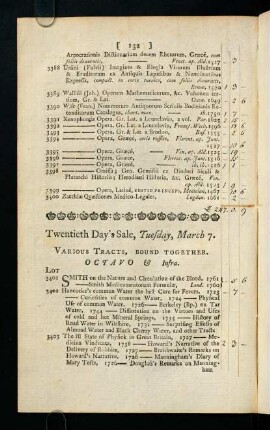 [ 132 ]
Arpocrationis Dictionarium decem Rhetorum, Græcè, cum
foliis deauratis, Venet. ap. Ald. 1527 - 3 -
3388 Ursini (Fulvi) Imagines & Elogia Virorum Illustrium
& Eruditorum ex Antiquis Lapidibus & Nomismatibus
Expressa, compact. in corio turcico, cum foliis deauratis,
Romæ, 1570 1 3
3389 Wallisii (Joh.) Operum Mathematicorum, &c. Volumen tertium,
Gr. & Lat. Oxon 1699 - 2 6
3390 Wise (Fran.) Nummorum Antiquorum Scriniis Bodleianis Reconditorum
Catalogus, chart. max. Ib. 1750 1 7
3391 Xenophontis Opera, Gr. Lat. a Leunclavio, 2 vol. Par. 1625
3392 — Opera, Gr. Lat. a Leunclavio, Francf. March. 1596
3393 — Opera, Gr. & Lat. a Brodæo, Bas. 1555 - 2 6
3394 — Opera, Græcè, corio russico, Florent. ap. Junt.
3395 — Opera, Græcè, Ven. ap. Ald. 1525
3396 — Opera, Græcè, Florent. ap. Junt. 1516
3397 — Opera, Græcè,
3398 — Omissa; Geo. Gemisti ex Diodori Siculi &
Plutarchi Historiis; Herodiani Historia, &c. Græcè, Ven.
ap. Ald. 1503
3399 — Opera, Latinè, EDITIO PRINCEPS, Mediolan. 1467
3400 Zacchiæ Quæstiones Medico-Legales, Lugdun. 1661
Twentieth Day's Sale, Tuesday, March 7.
VARIOUS TRACTS, BOUND TOGETHER.
OCTAVO & Infra.
LOT
3401 SMITH on the Nature and Circulation of the Blood, 1761
— Smith Medicamentorum Formulæ, Lond. 1760
3402 Hancocke's common Water the best Cure for Fevers, 1723
— Curiosities of common Water, 1724 — Physical
Use of common Water, 1726 — Berkeley (Bp.) on Tar
Water, 1744 — Dissertation on the Virtues and Uses
of cold and hot Mineral Springs, 1735 — History of
Road Water in Wiltshire, 1731 — Surprising Effects of
Almond Water and Black Cherry Water, and other Tracts
3403 The Ill State of Physick in Great Britain, 1727 —
Howard's Narrative of the
Delivery of Rabbits, 1727 — Braithwaite's Remarks on
Howard's Narrative, 1726 — Manningham's Diary of
Mary Tofts, 1726 — Douglas's Remarks on Manning-
ham